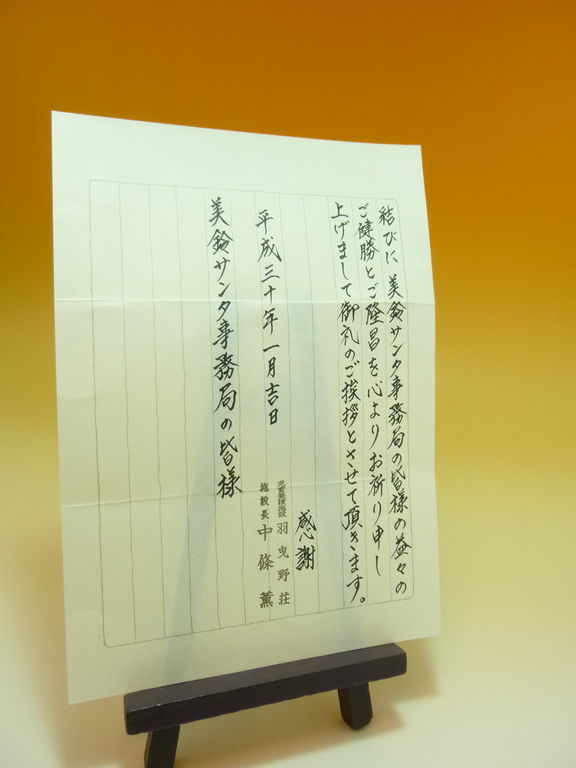 結びに美鈴サンタ事務局の皆様の益々の
ご健勝とご隆昌を心よりお祈り申し
上げまして御礼のご挨拶とさせて頂きます。
感心謝
平成三十年一月吉日
児童養護施設 羽曳野荘
施設長 中條 薫
美鈴サンタ事務局の皆様